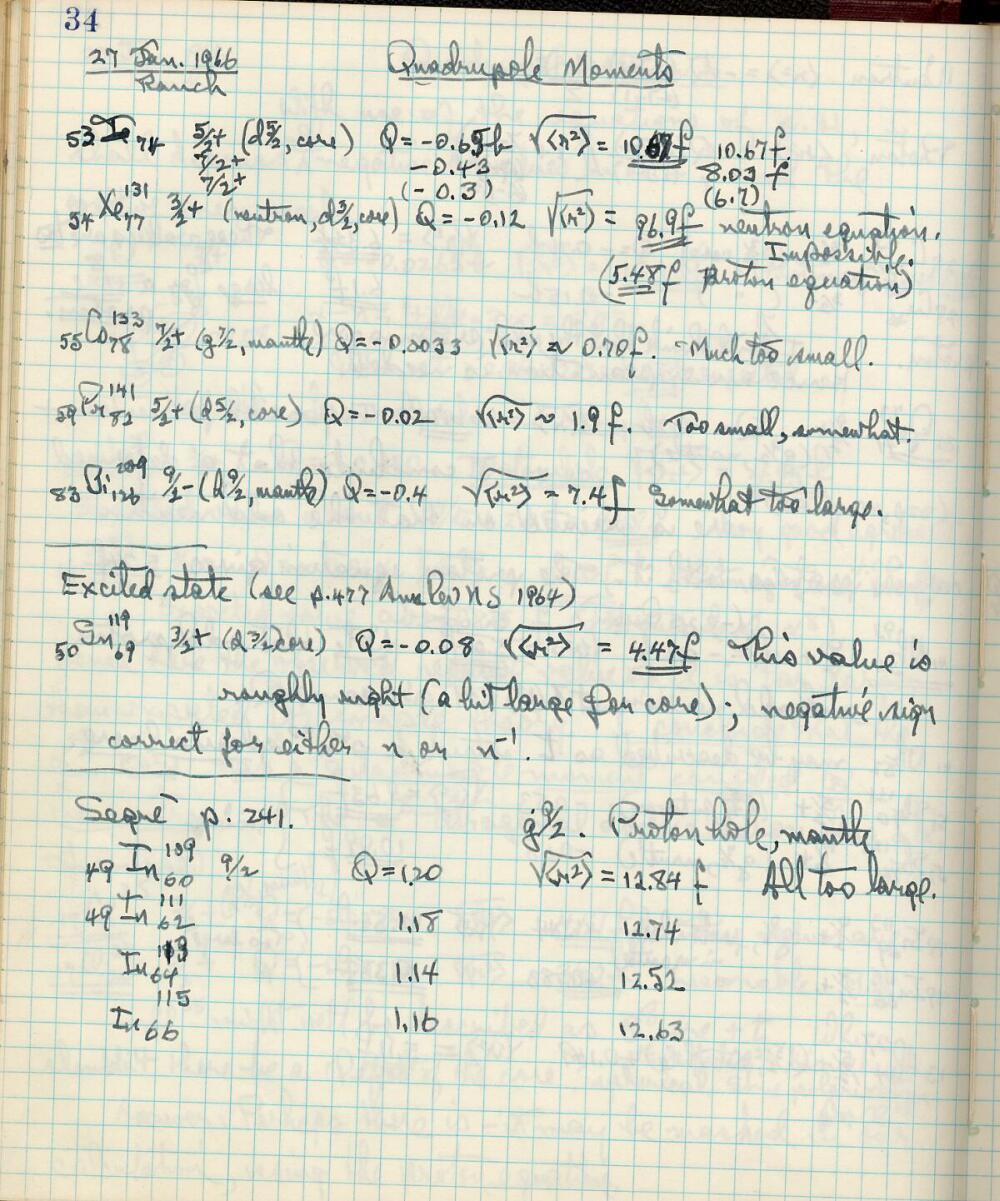 34
27 Jan. 1966 Quadrupole Moments
Ranch
53I74 5/2+ (d5/2, core) Q = -0.65b √⟨r²⟩ = 10.67f 10.67f.
7/2+ -0.43 8.03 f
7/2+ (-0.3) (6.7)
54Xe¹³¹77 3/2+ (neutron, d3/2, core) Q = -0.12 √⟨r²⟩ = 96.9f neutron equation.
Impossible.
(5.48f proton equation)
55Cs¹³³78 7/2+ (g7/2, mantle) Q = -0.0033 √⟨r²⟩ ≈ 0.70f. Much too small.
59Pr¹⁴¹82 5/2+ (d5/2, core) Q = -0.02 √⟨r²⟩ ~ 1.9 f. Too small, somewhat.
83Bi²⁰⁹126 9/2- (d9/2, mantle) Q = -0.4 √⟨r²⟩ = 7.4f Somewhat too large.
Excited state (see p.477 Ann Rev NS 1964)
50Sn¹¹⁹69 3/2+ (d3/2 core) Q = -0.08 √⟨r²⟩ = 4.47f This value is
roughly right (a bit large for core); negative sign
correct for either n or n⁻¹.
Segrè p. 241. g9/2. Proton hole, mantle
49In¹⁰⁹60 9/2 Q = 1.20 √⟨r²⟩ = 12.84 f All too large.
49In¹¹¹62 1.18 12.74
In¹¹³64 1.14 12.52
In¹¹⁵66 1.16 12.63